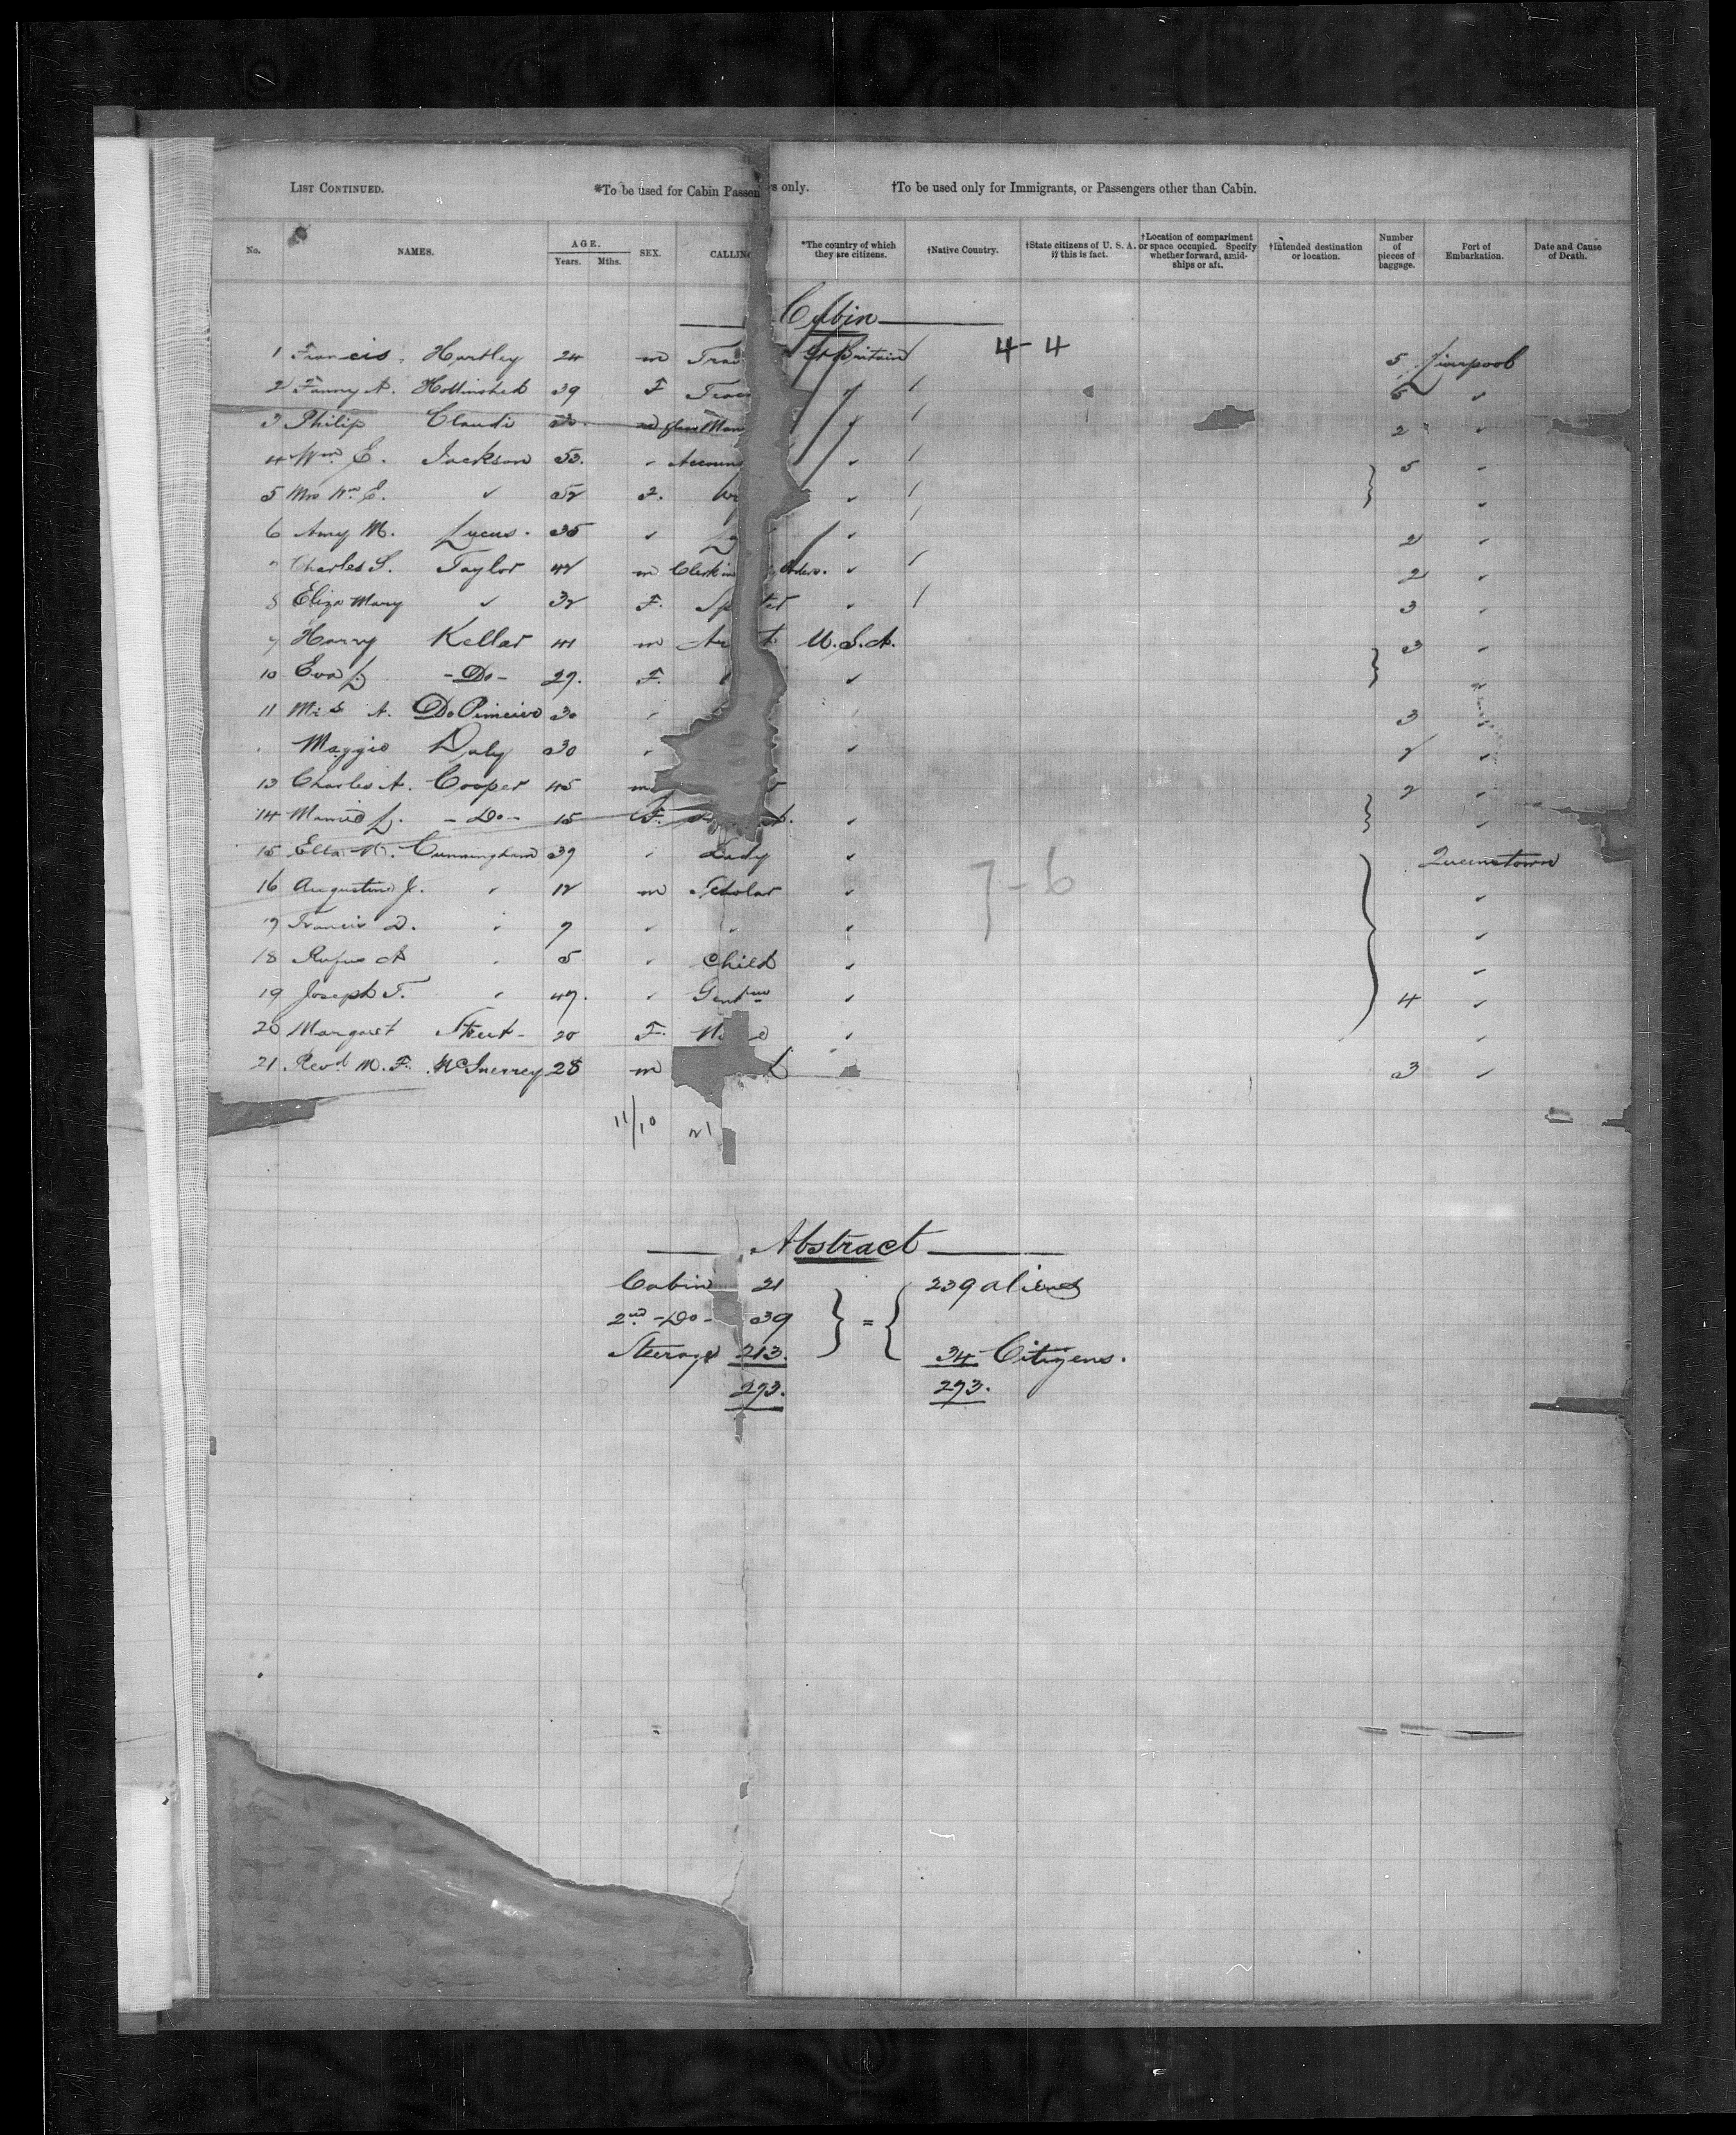 LIST CONTINUED. *To be used for Cabin Passen s only. †To be used only for Immigrants, or Passengers other than Cabin.
No. NAMES. AGE. Years. Mths. SEX. CALLING *The country of which they are citizens. †Native Country. †State citizens of U. S. A. if this is fact. †Location of compartment or space occupied. Specify whether forward, amidships or aft. †Intended destination or location. Number of pieces of baggage. Port of Embarkation. Date and Cause of Death.
Cabin
1 Francis Hartley 24 m Gt Britain 4-4 5 Liverpool
2 Fanny A. Hollinshed 39 F 5 ✓
3 Philip Claudi m 2 ✓
4 Wm E. Jackson 53. ✓ Accoun ✓ 5 ✓
5 Mrs Wm E. ✓ 52 F. ✓ ✓
6 Amy M. Lucas. 35 ✓ ✓ 2 ✓
7 Charles S. Taylor 42 m Clerk in ✓ 2 ✓
8 Eliza Mary ✓ 32 F. Sp ter ✓ 3 ✓
9 Harry Kellar 41 m A t. U.S.A. 3 ✓
10 Eva L. -Do- 29. F. ✓ ✓
11 A. 30 ✓ 3 ✓
Maggie Daly 30 ✓ ✓ 2 ✓
13 Charles A. Cooper 45 m 2 ✓
14 Mamie L. -Do- 15 F. ✓ ✓
15 Ella M. Cunningham 39 ✓ Lady ✓ 7-6 Queenstown
16 Augustine J. ✓ 12 m Scholar ✓ ✓
17 Francis D. ✓ 7 ✓ ✓ ✓ ✓
18 Rufus A ✓ 5 ✓ Child ✓ ✓
19 Joseph F. ✓ 47. ✓ Gentn ✓ 4 ✓
20 Margaret 20 F. ✓ ✓
21 Revd M. F. McInerney 28 m 3 ✓
11/10 21
Abstract
Cabin 21 239 aliens
2nd -Do- 39 } = {
Steerage 213. 34 Citizens.
273. 273.